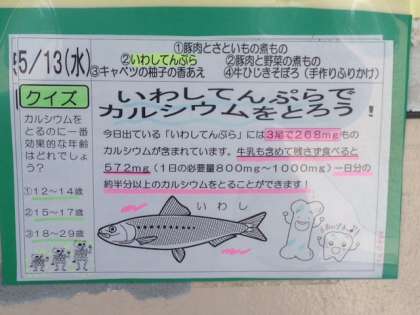 5/13(水)
①豚肉とさといもの煮もの
②いわしてんぷら ②豚肉と野菜の煮もの
③キャベツの柚子の香あえ ④牛ひじきそぼろ(手作りふりかけ)
クイズ
カルシウムを
とるのに一番
効果的な年齢
はどれでしょ
う?
①12〜14歳
②15〜17歳
③18〜29歳
いわしてんぷらで
カルシウムをとろう
今日出ている「いわしてんぷら」には3尾で268mgもの
カルシウムが含まれています。牛乳も含めて残さず食べると
572mg(1日の必要量800mg〜1000mg)一日分の
約半分以上のカルシウムをとることができます!
いわし